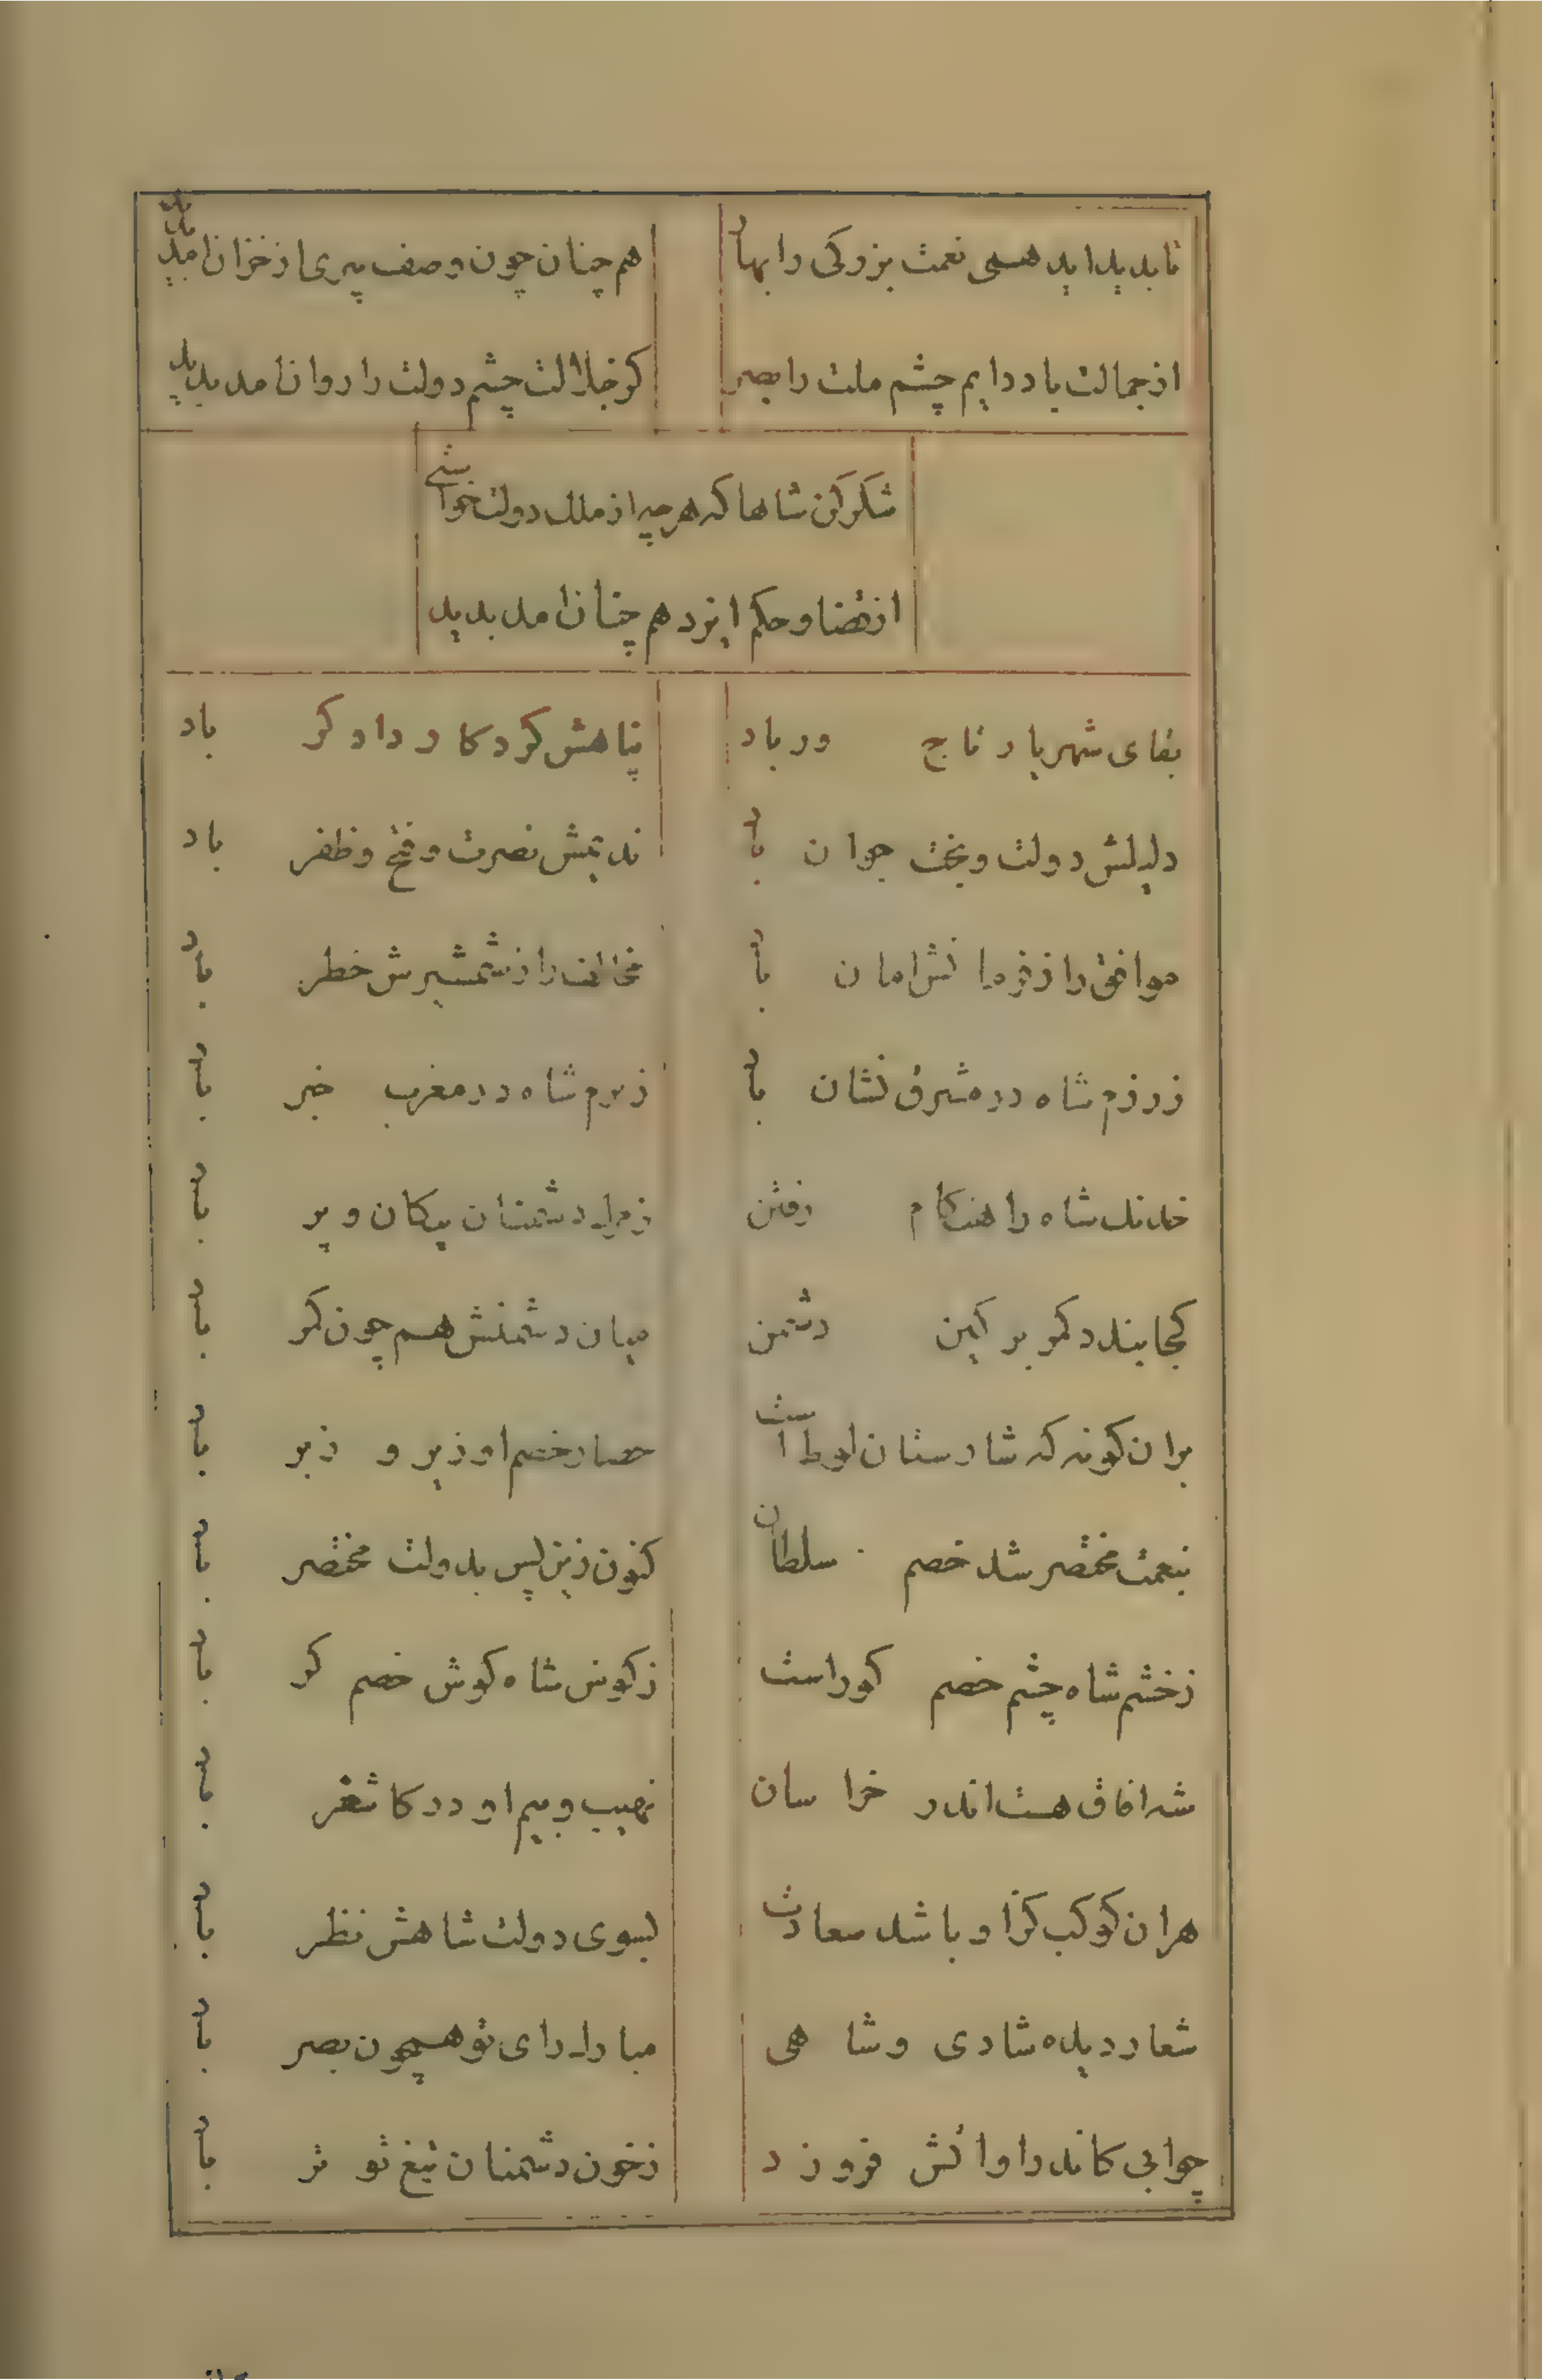 تا بدید اید همی نعمت بزرکی را بها هم چنان چون وصف پیری از خزان امد بدید
از جمالت باد دایم چشم ملت را بصر کز جلالت چشم دولت را روان امد بدید
شکر کن شاها که هر چه از ملک دولت خواستی
از قضا و حکم ایزد هم چنان امد بدید
بقای شهریار تاج ور باد پناهش کردکار دادکر باد
دلیلش دولت و بخت جوان باد ندیمش نصرت و فتح و ظفر باد
موافق را ز فرمانش امان باد مخالف را ز شمشیرش خطر باد
ز رزم شاه در مشرق نشان باد ز بزم شاه در مغرب خبر باد
خدنک شاه را هنکام رفتن دشمنان پیکان و پر باد
کجا بندد کمر بر کین دشمن میان دشمنش هم چون کمر باد
بران کونه که شارستان لوط است حصار خصم او زیر و زبر باد
بنعمت مختصر شد خصم سلطان کنون زین پس بدولت مختصر باد
ز خشم شاه چشم خصم کور است ز کوس شاه کوش خصم کر باد
شه افاق هست اندر خراسان نهیب و بیم او در کاشغر باد
هر ان کوکب کزو باشد سعادت بسوی دولت شاهش نظر باد
شعار دیده شادی و شاهی مبارک رای تو همچون بصر باد
چو ابی کاندرو اتش فروزد ز خون دشمنان تیغ تو تر باد